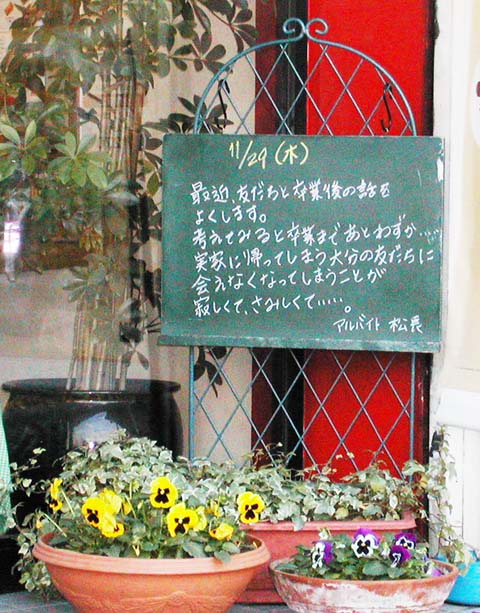 11/29(木)
最近、友だちと卒業後の話を
よくします。
考えてみると卒業まであとわずか…。
実家に帰ってしまう大分の友だちに
会えなくなってしまうことが
寂しくて、さみしくて…。
アルバイト 松長